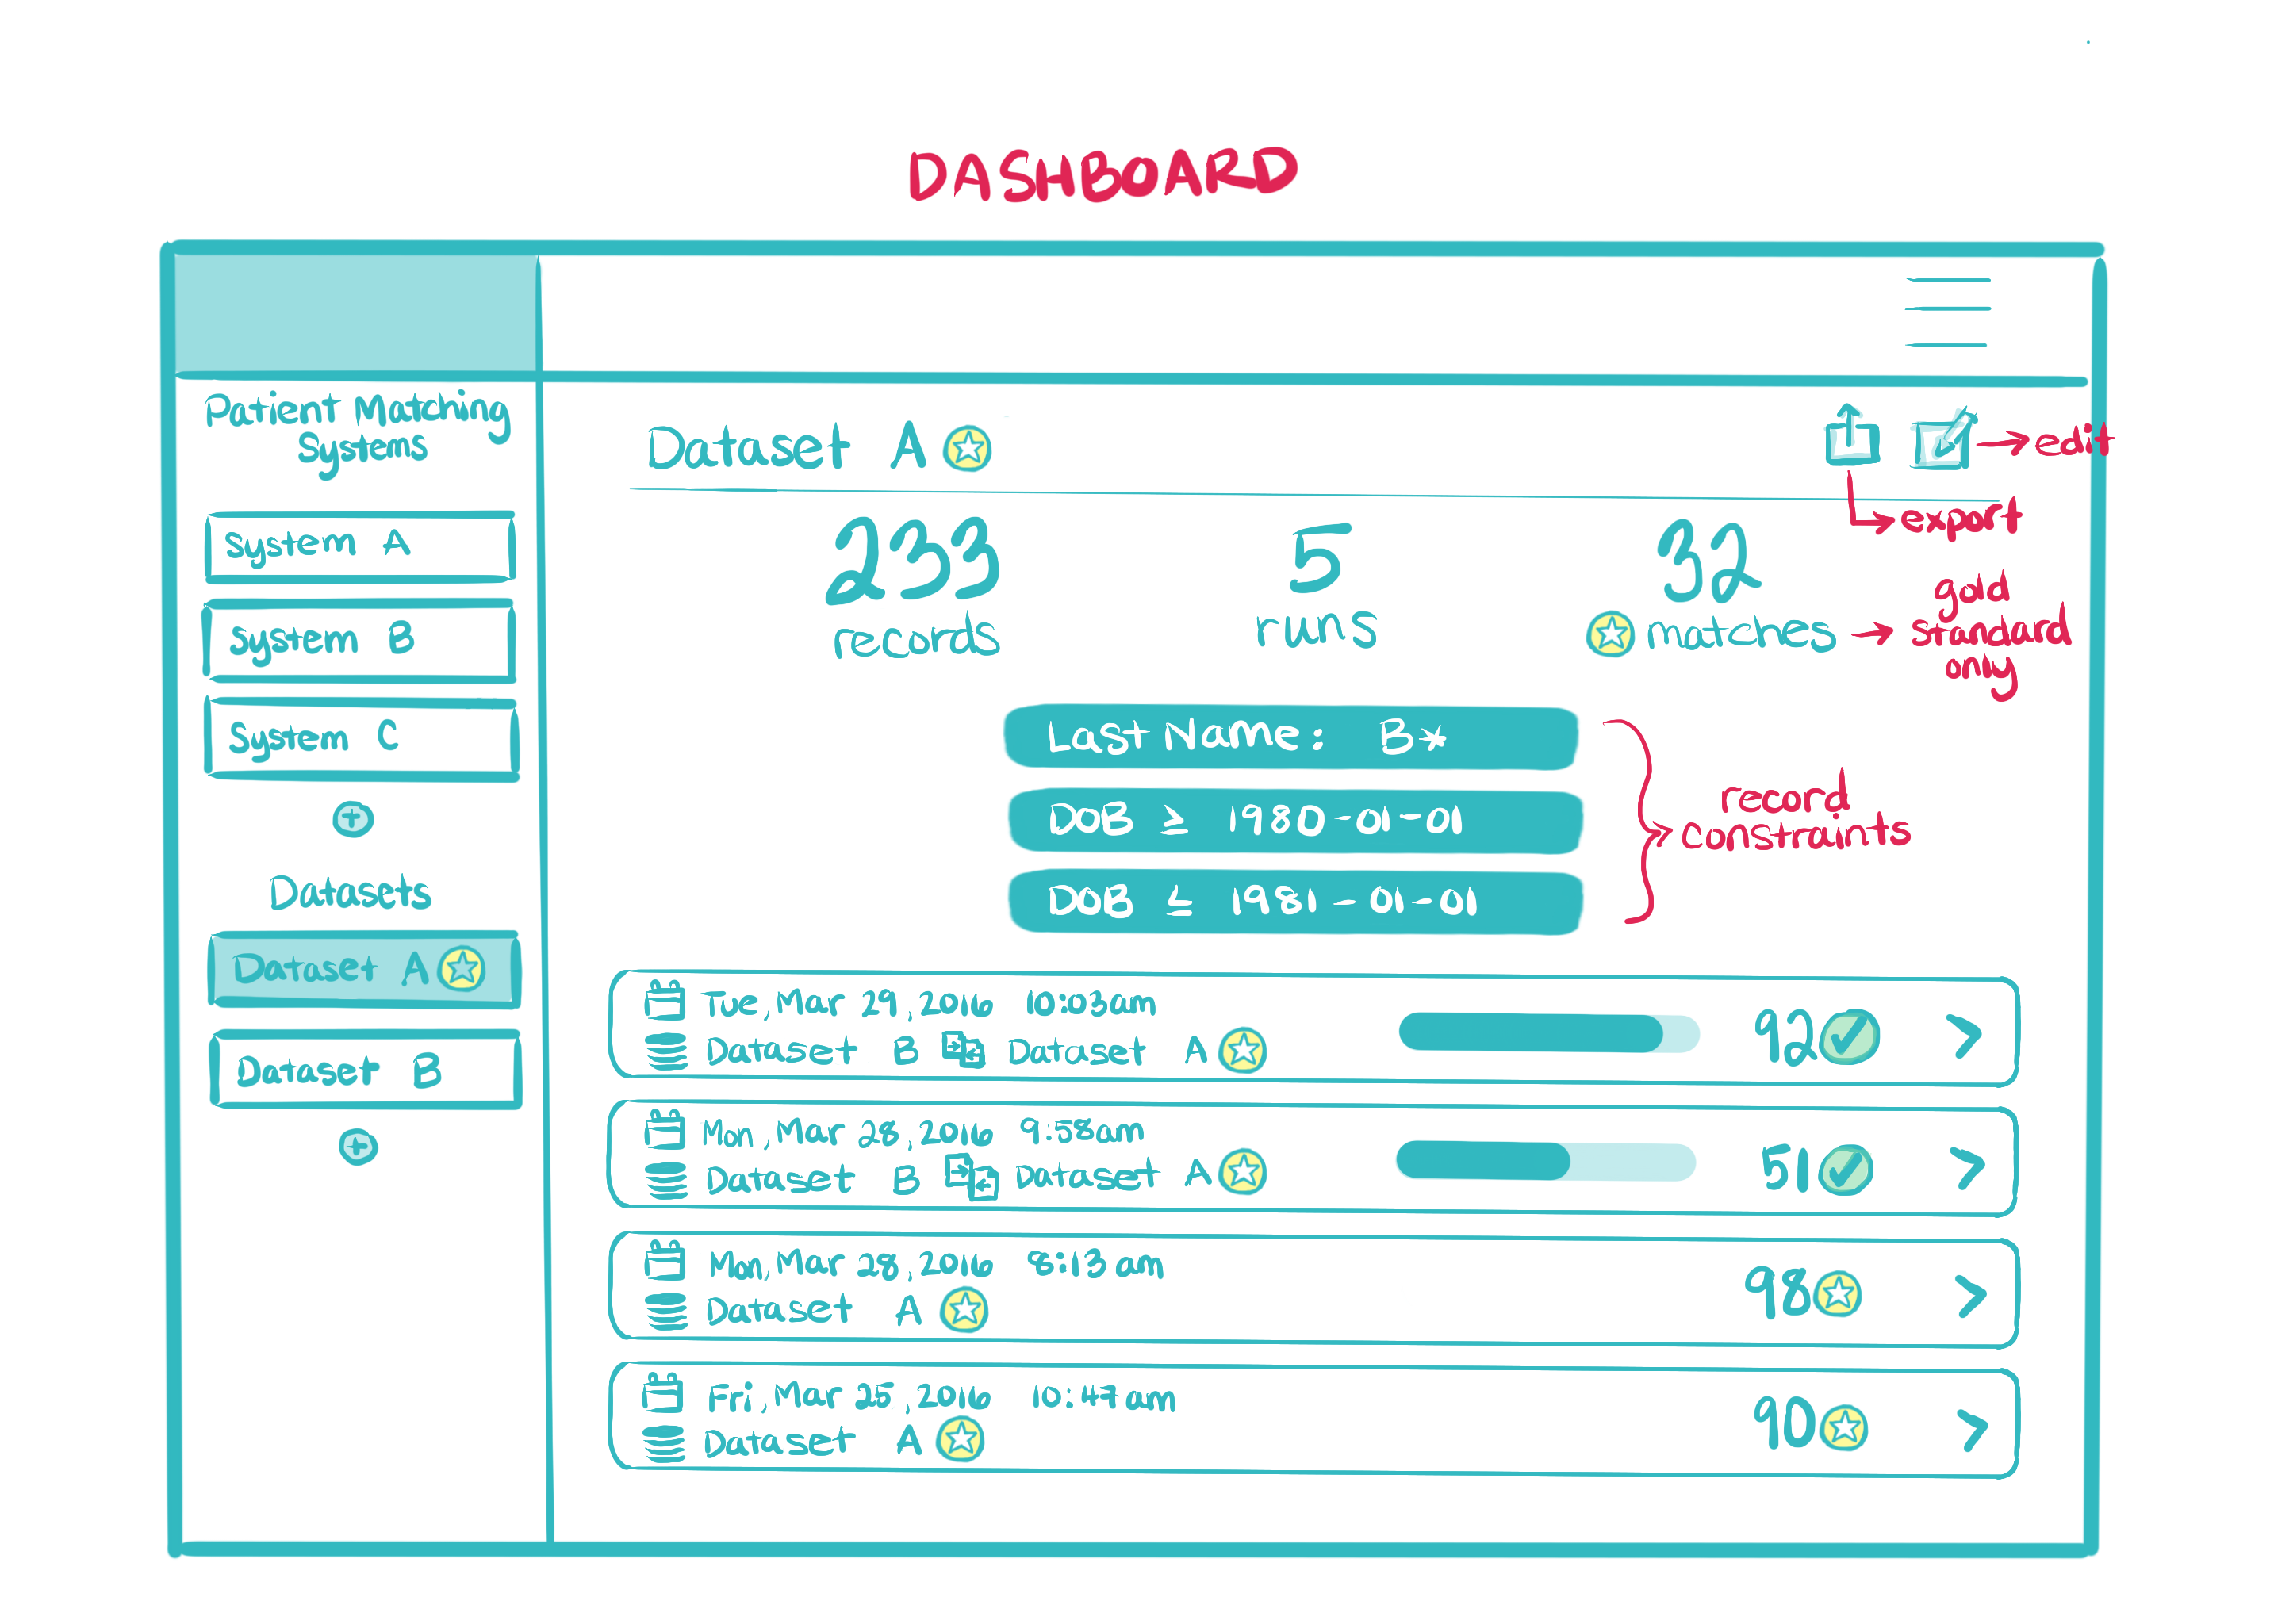 DASHBOARD
Patient Matching
Systems
System A
System B
System C
+
Datasets
Dataset A
Dataset B
+
Dataset A
edit
export
233
records
5
runs
32
matches
gold
standard
only
Last Name: B*
DOB ≥ 1980-01-01
DOB ≤ 1981-01-01
record
constraints
Tue, Mar 29, 2016 10:03am
Dataset B Dataset A
92
>
Mon, Mar 28, 2016 9:58am
Dataset B Dataset A
51
>
Mon, Mar 28, 2016 8:13am
Dataset A
98
>
Fri, Mar 25, 2016 10:47am
Dataset A
90
>